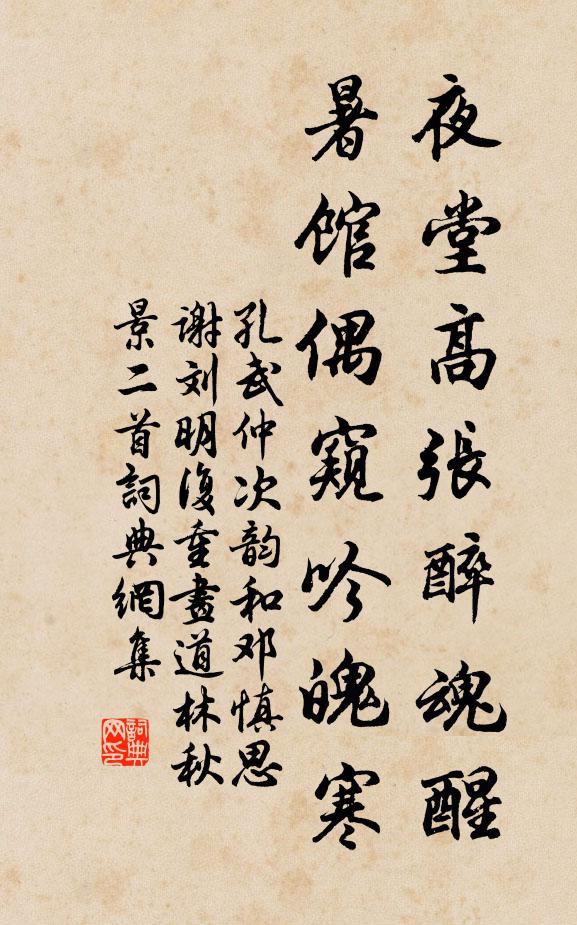 夜堂高張醉魂醒
暑馆偶窥吟魄寒
孔武仲次韵和邓慎思
谢刘明復重畫道林秋
景二首詞典網集
詞典网印